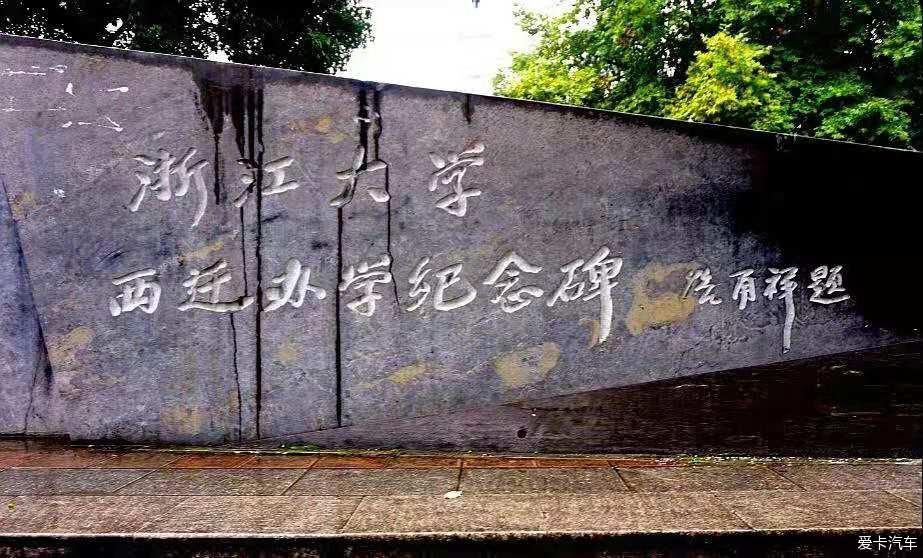 浙江大学
西迁办学纪念碑 浩育祥题
爱卡汽车